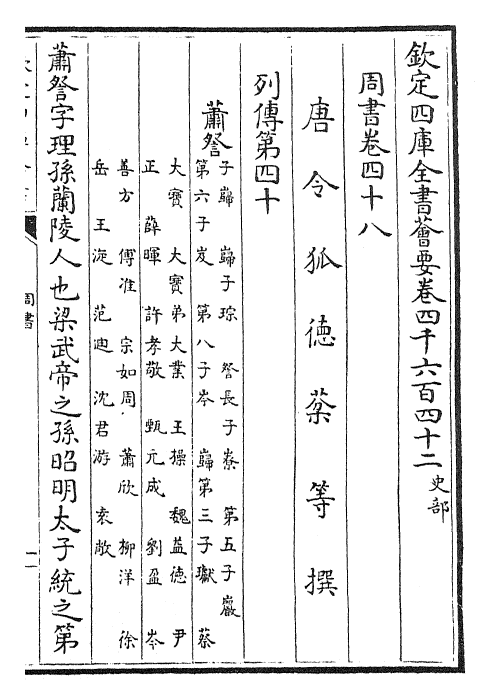 欽定四庫全書薈要卷四千六百四十二 史部
周書卷四十八
唐令狐德棻等撰
列傳第四十
蕭詧 子巋 巋子琮 詧長子嶚 第五子巖
第六子岌 第八子岑 巋第三子瓛 蔡
大寳 大寳弟大業 王操 魏益德 尹
正 薛暉 許孝敬 甄元成 劉盈 岑
善方 傅准 宗如周 蕭欣 柳洋 徐
岳 王淀 范迪 沈君游 袁敞
蕭詧字理孫蘭陵人也梁武帝之孫昭明太子統之第
周書
一